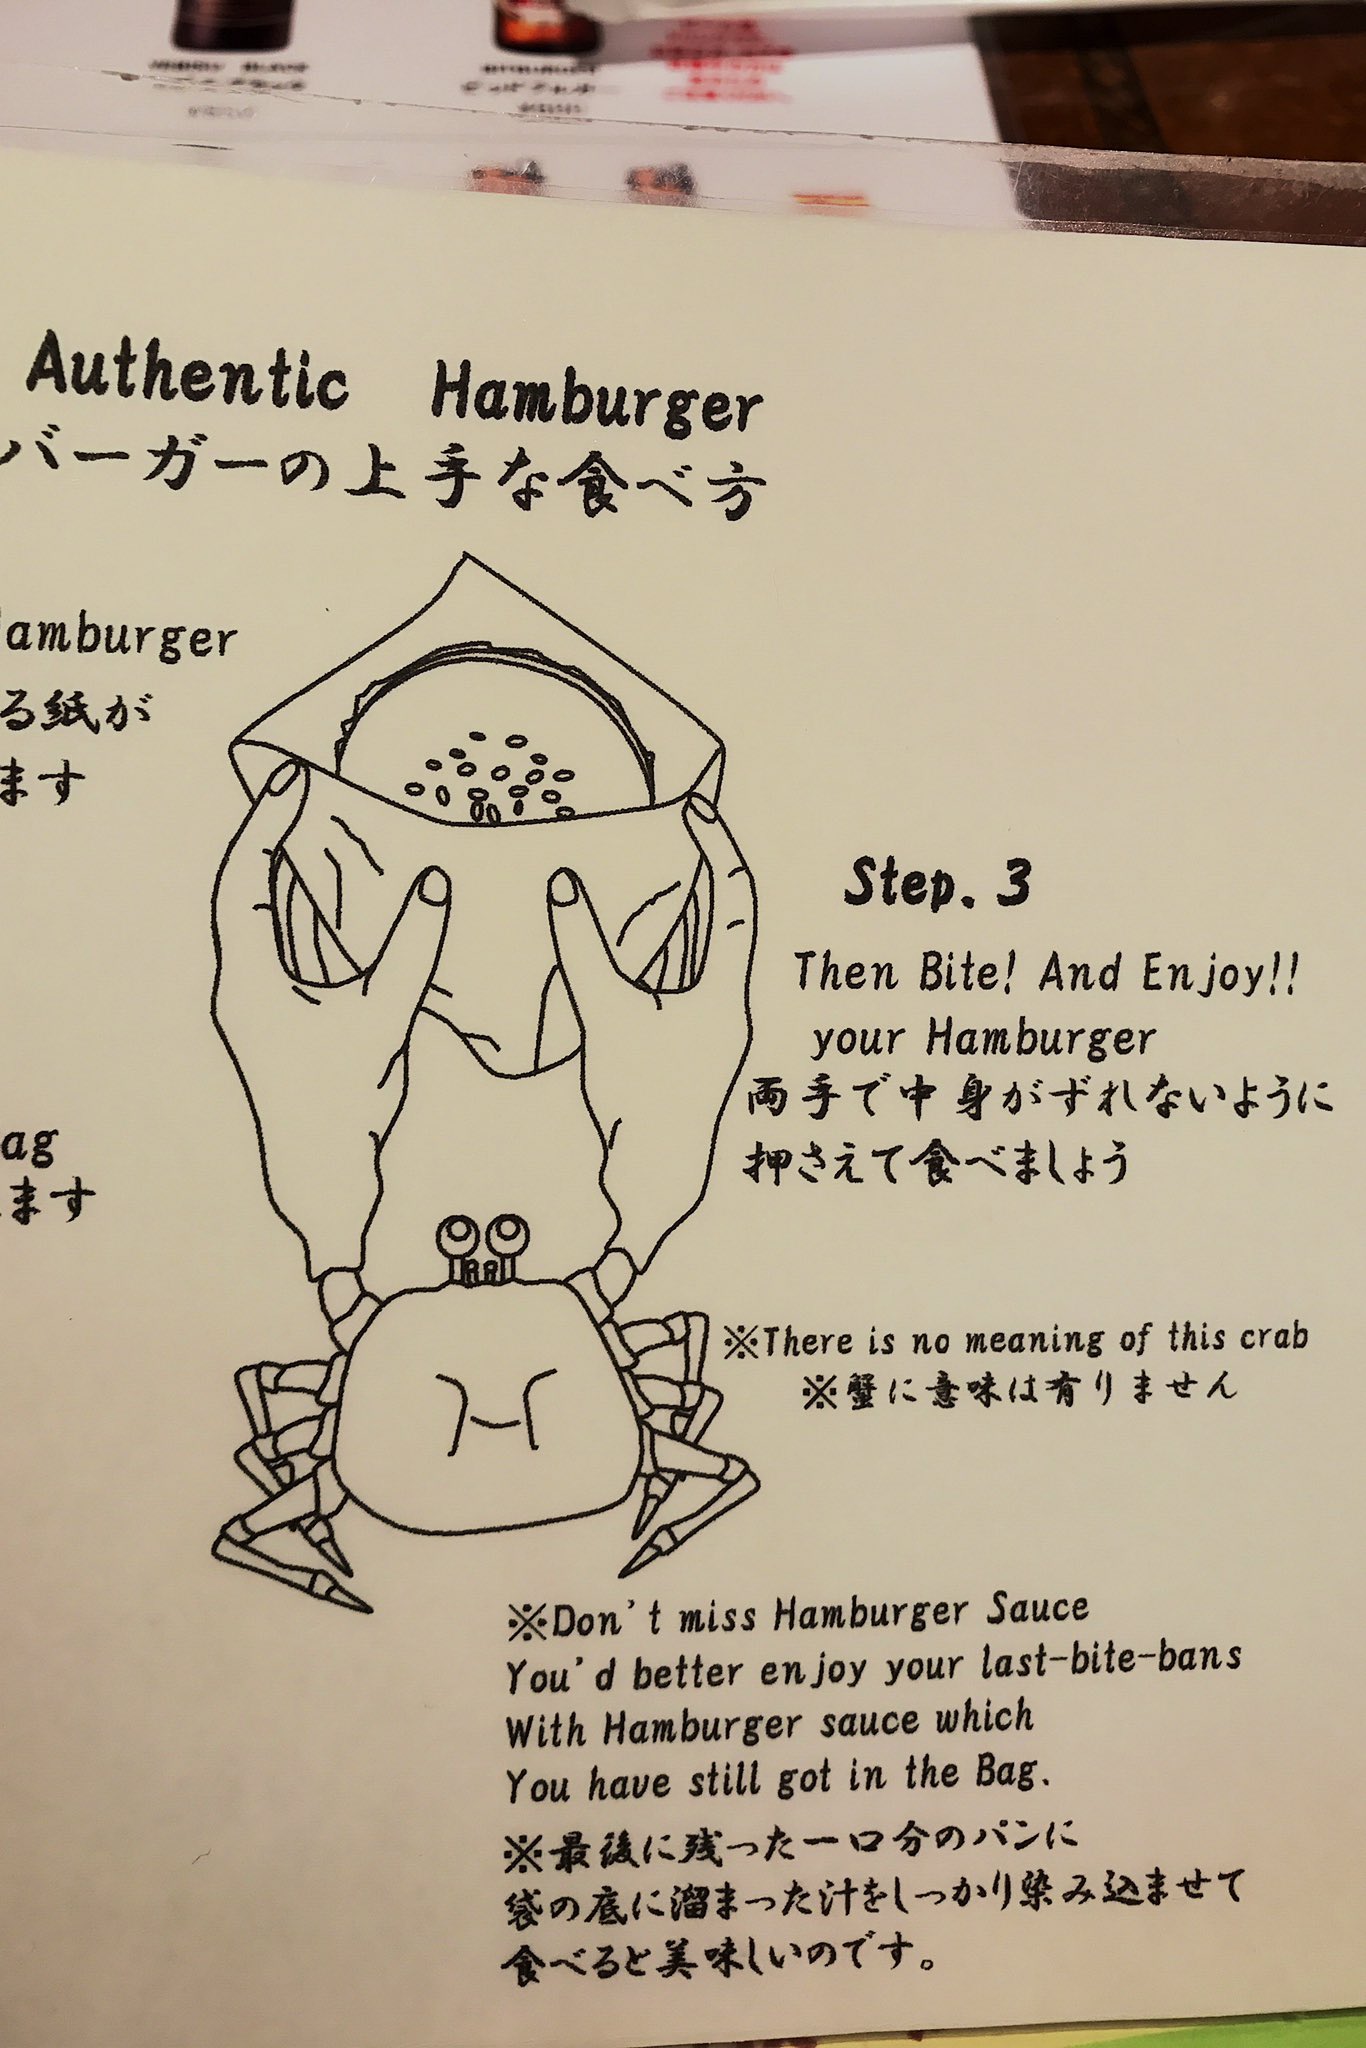 Authentic Hamburger
バーガーの上手な食べ方
Hamburger
る紙が
ます
ag
ます
Step. 3
Then Bite! And Enjoy!!
your Hamburger
両手で中身がずれないように
押さえて食べましょう
※There is no meaning of this crab
※蟹に意味は有りません
※Don't miss Hamburger Sauce
You'd better enjoy your last-bite-bans
With Hamburger sauce which
You have still got in the Bag.
※最後に残った一口分のパンに
袋の底に溜まった汁をしっかり染み込ませて
食べると美味しいのです。